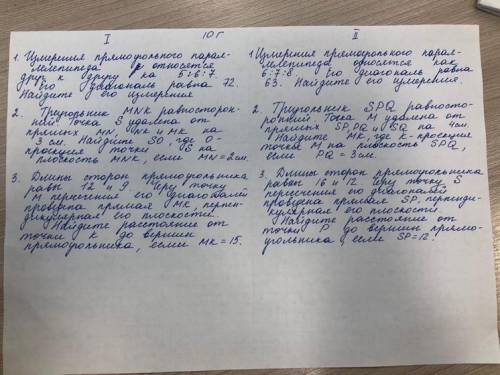 10 г
I
1. Измерения прямоугольного парал-
лелепипеда относятся
друг к другу как 5:6:7.
Его диагональ равна 72.
Найдите его измерения
2. Треугольник MNK равносторон-
ний. Точка S удалена от
прямых MN, NK и MK на
3 см. Найдите SO, где O -
проекция точки S на
плоскость MNK, если MN=2см.
3. Длины сторон прямоугольника
равны 12 и 9. Через точку
M пересечения его диагоналей
проведена прямая MK, перпен-
дикулярная его плоскости.
Найдите расстояние от
точки K до вершин
прямоугольника, если MK=15.
II
1 Измерения прямоугольного парал-
лелепипеда относятся как
6:7:8. Его диагональ равна
63. Найдите его измерения.
2. Треугольник SPQ равносто-
ронний. Точка M удалена от
прямых SP, PQ и SQ на 4см
Найдите MK, где K-проекция
точки M на плоскость SPQ,
если PQ=3см.
3. Длины сторон прямоугольника
равны 16 и 12 Через точку S
пересечения его диагоналей
проведена прямая SP, перпенди-
кулярная его плоскости.
Найдите расстояние от
точки P до вершин прямо-
угольника, если SP=12.